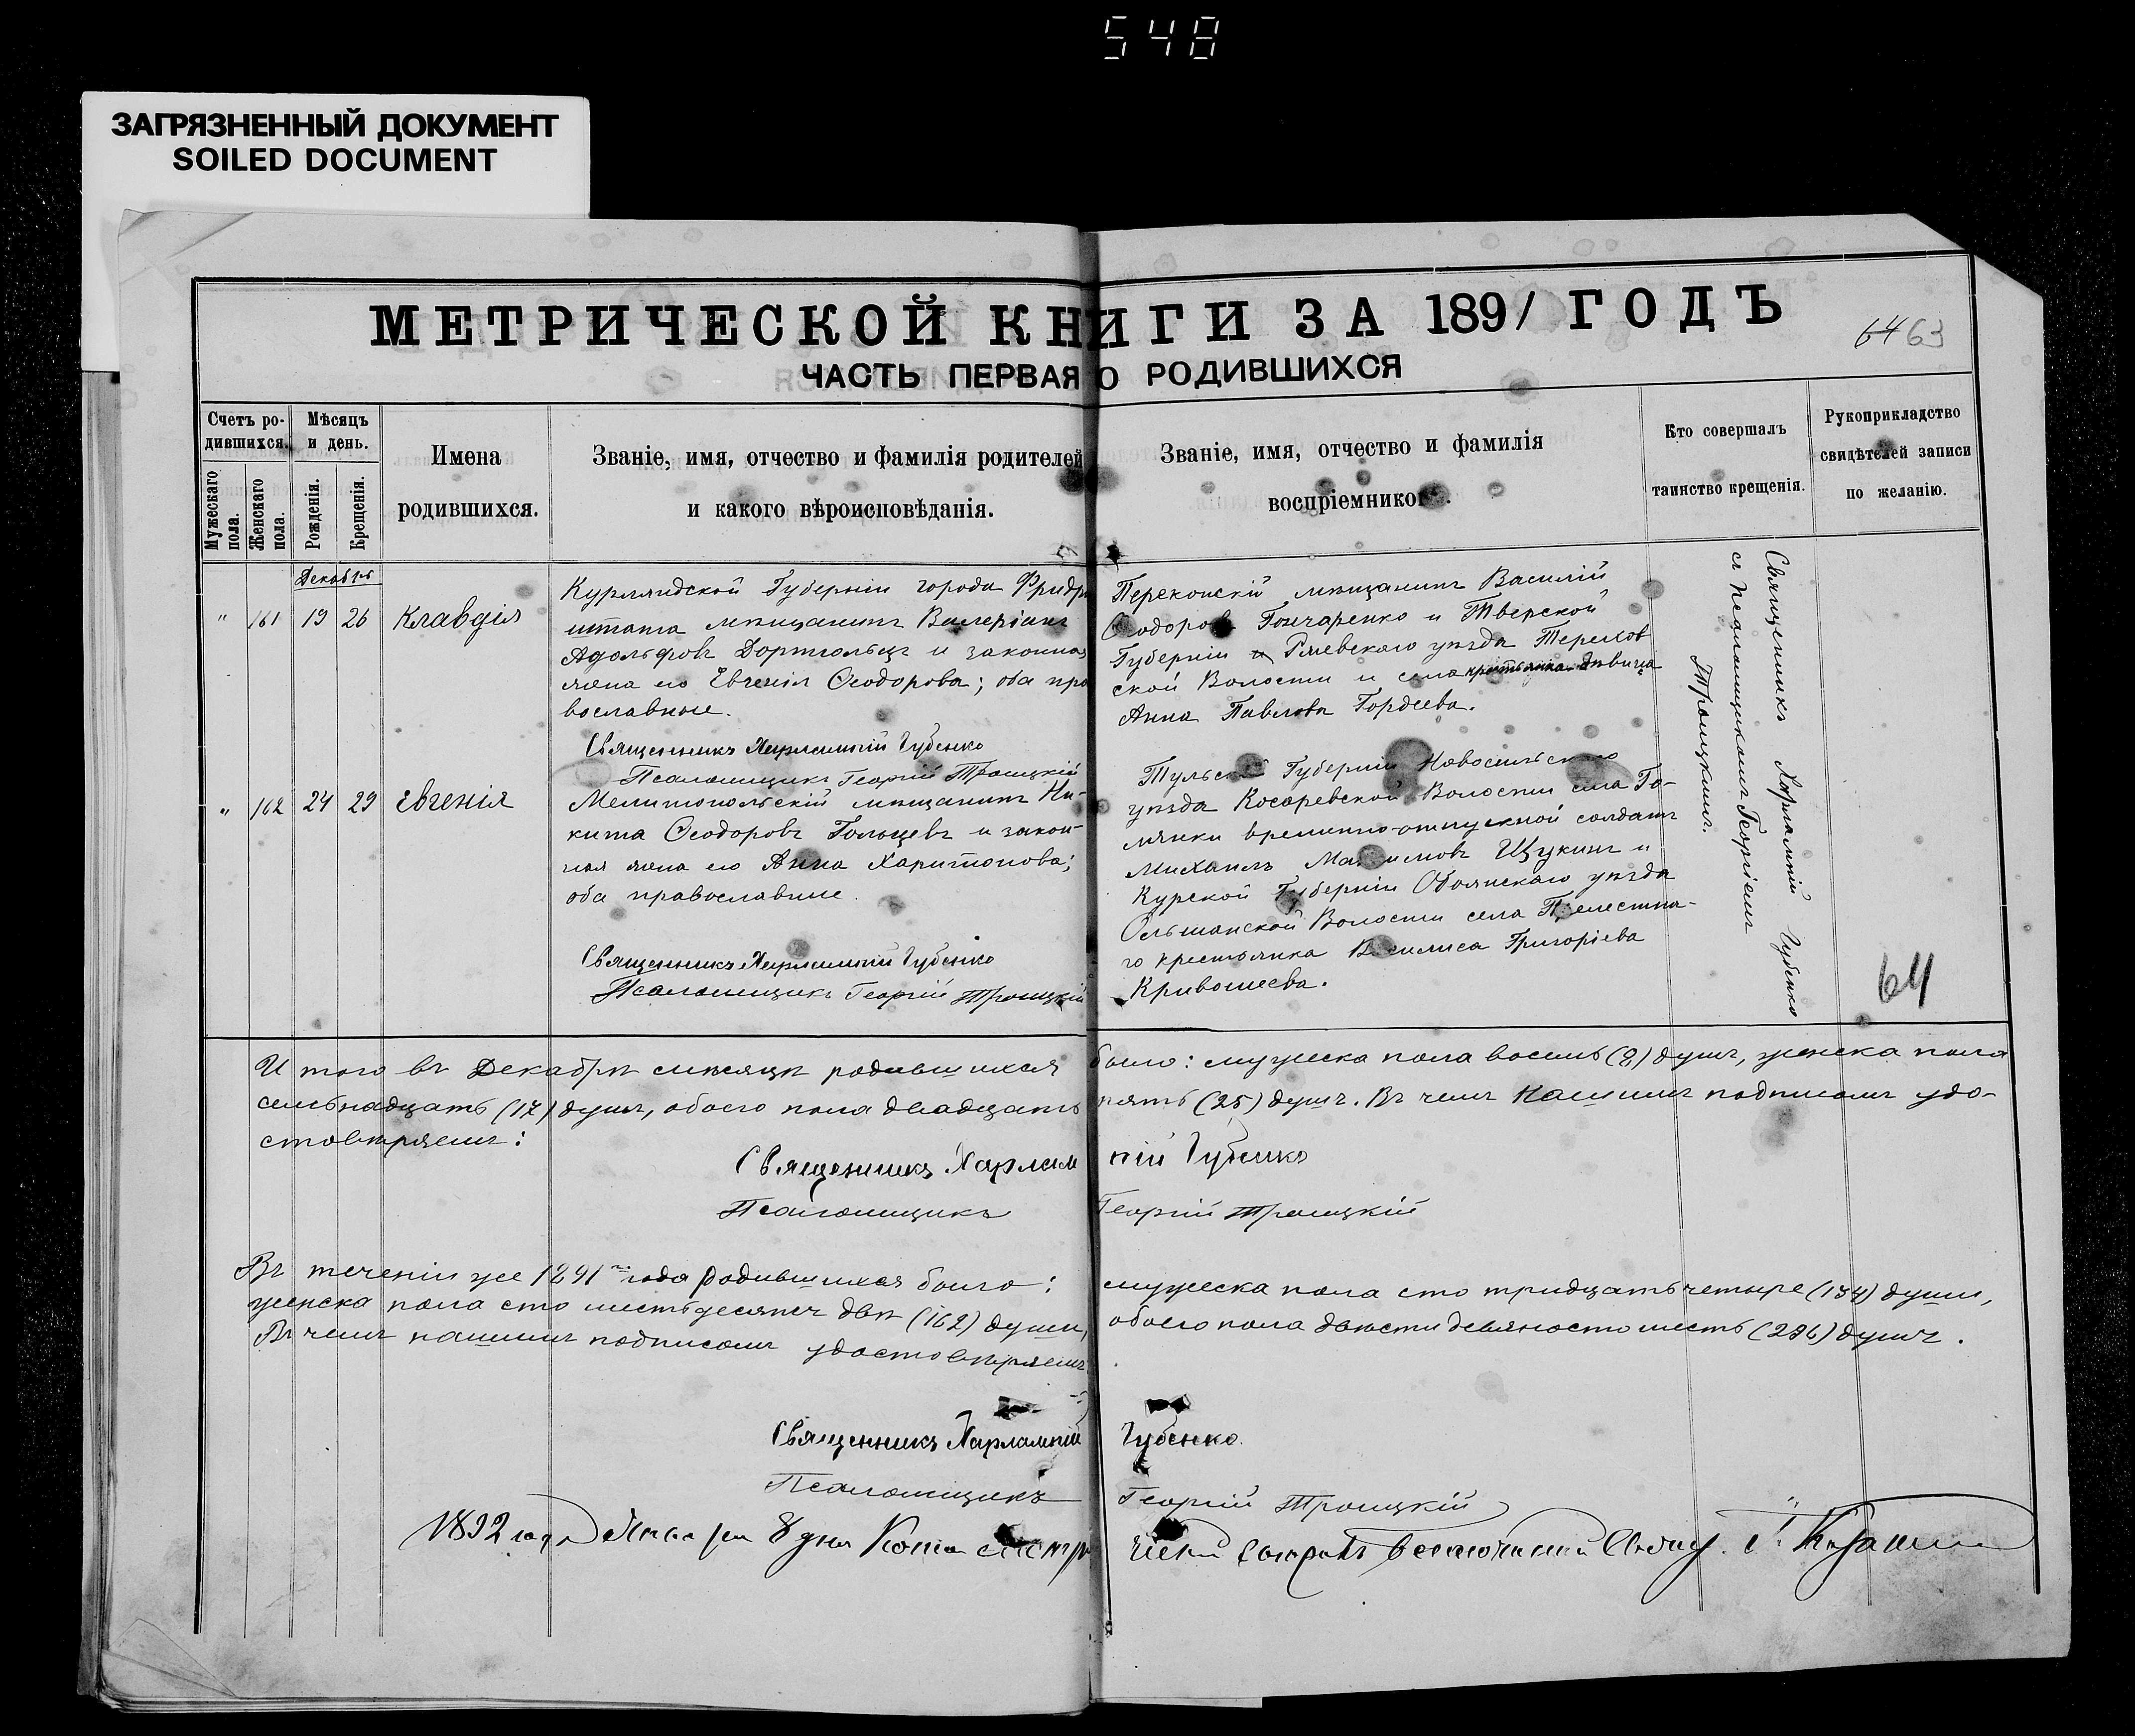 548
ЗАГРЯЗНЕННЫЙ ДОКУМЕНТ
SOILED DOCUMENT
МЕТРИЧЕСКОЙ КНИГИ ЗА 1891 ГОДЪ
64 63
ЧАСТЬ ПЕРВАЯ О РОДИВШИХСЯ
Счетъ ро-
дившихся.
Мужескаго пола.
Женскаго пола.
Мѣсяцъ
и день.
Рожденія.
Крещенія.
Имена
родившихся.
Званіе, имя, отчество и фамилія родителей
и какого вѣроисповѣданія.
Званіе, имя, отчество и фамилія
воспріемниковъ.
Кто совершалъ
таинство крещенія.
Рукоприкладство
свидѣтелей записи
по желанію.
Декабрь
" 161 19 26 Клавдія
Курляндской Губерніи города Фридри
штата мѣщанинъ Валеріанъ
Адольфовъ Дортгольцъ и законная
жена его Евгенія Ѳеодорова; оба пра
вославные.
Священникъ Харлампій Губенко
Псаломщикъ Георгій Троицкій
Перекопскій мѣщанинъ Василій
Ѳеодоровъ Гончаренко и Тверской
Губерніи и Ржевскаго уѣзда
ской Волости и села крестьянка дѣвица
Анна Павлова Гордеева.
" 162 24 29 Евгенія
Мелитопольскій мѣщанинъ Ни-
кита Ѳеодоровъ Гольцевъ и закон-
ная жена его Анна Харитонова;
оба православные.
Священникъ Харлампій Губенко
Псаломщикъ Георгій Троицкій
Тульской Губерніи Новосильскаго
уѣзда Косаревской Волости села Го-
мянки временно-отпускной солдатъ
Михаилъ Максимовъ Щукинъ и
Курской Губерніи Обоянскаго уѣзда
Ольшанской Волости села Прелестна-
го крестьянка Василиса Григоріева
Кривошеева.
Священникъ Харлампій Губенко
съ Псаломщикомъ Георгіемъ
Троицкимъ.
64
Итого въ Декабрѣ мѣсяцѣ родившихся было: мужеска пола восемь (8) душъ, женска пола
семьнадцать (17) душъ, обоего пола двадцать пять (25) душъ. Въ чемъ нашимъ подписомъ удо-
стовѣряемъ:
Священникъ Харлампій Губенко
Псаломщикъ Георгій Троицкій
Въ теченіи же 1891 года родившихся было: мужеска пола сто тридцать четыре (134) души,
женска пола сто шестьдесятъ двѣ (162) души, обоего пола двѣсти девяносто шесть (296) душъ.
Въ чемъ нашимъ подписомъ удостовѣряемъ.
Священникъ Харлампій Губенко.
Псаломщикъ Георгій Троицкій
1892 года Января 8 дня